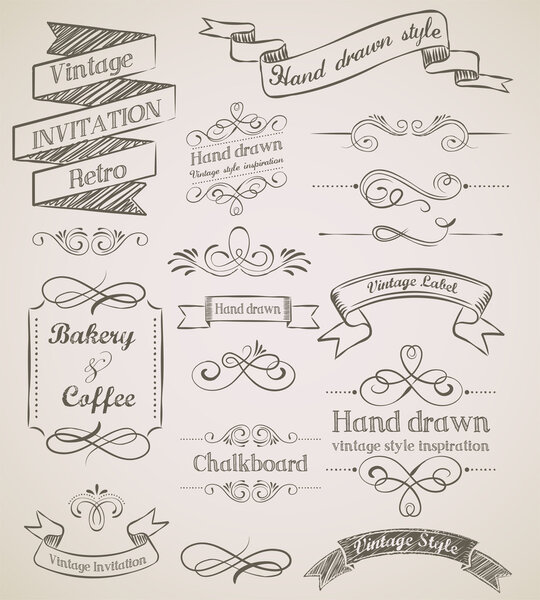 Vintage
INVITATION
Retro
Hand drawn style
Hand drawn
Vintage style inspiration
Hand drawn
Vintage Label
Bakery
&
Coffee
Hand drawn
vintage style inspiration
Chalkboard
Vintage Invitation
Vintage Style